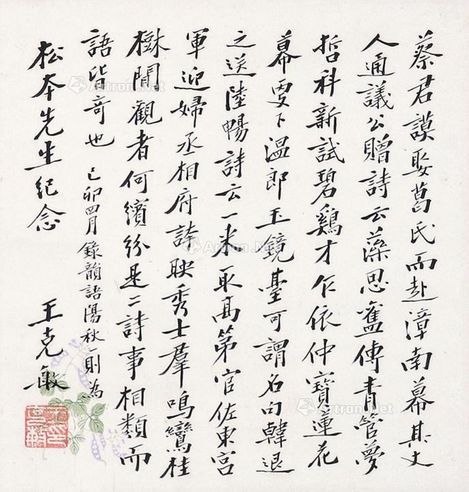 蔡君謨娶葛氏而赴漳南幕其丈
人通議公贈詩云藻思舊傳青管夢
哲科新試碧鷄才乍依仲寶蓮花
幕更下溫郎玉鏡臺可謂名句韓退
之送陸暢詩云一來取高第官佐東宮
軍迎婦丞相府誇映秀士羣鳴鸞桂
樹間觀者何繽紛是二詩事相類而
語皆奇也 己卯四月錄韻語陽秋一則為
松本先生紀念 王克敏
Artron.Net